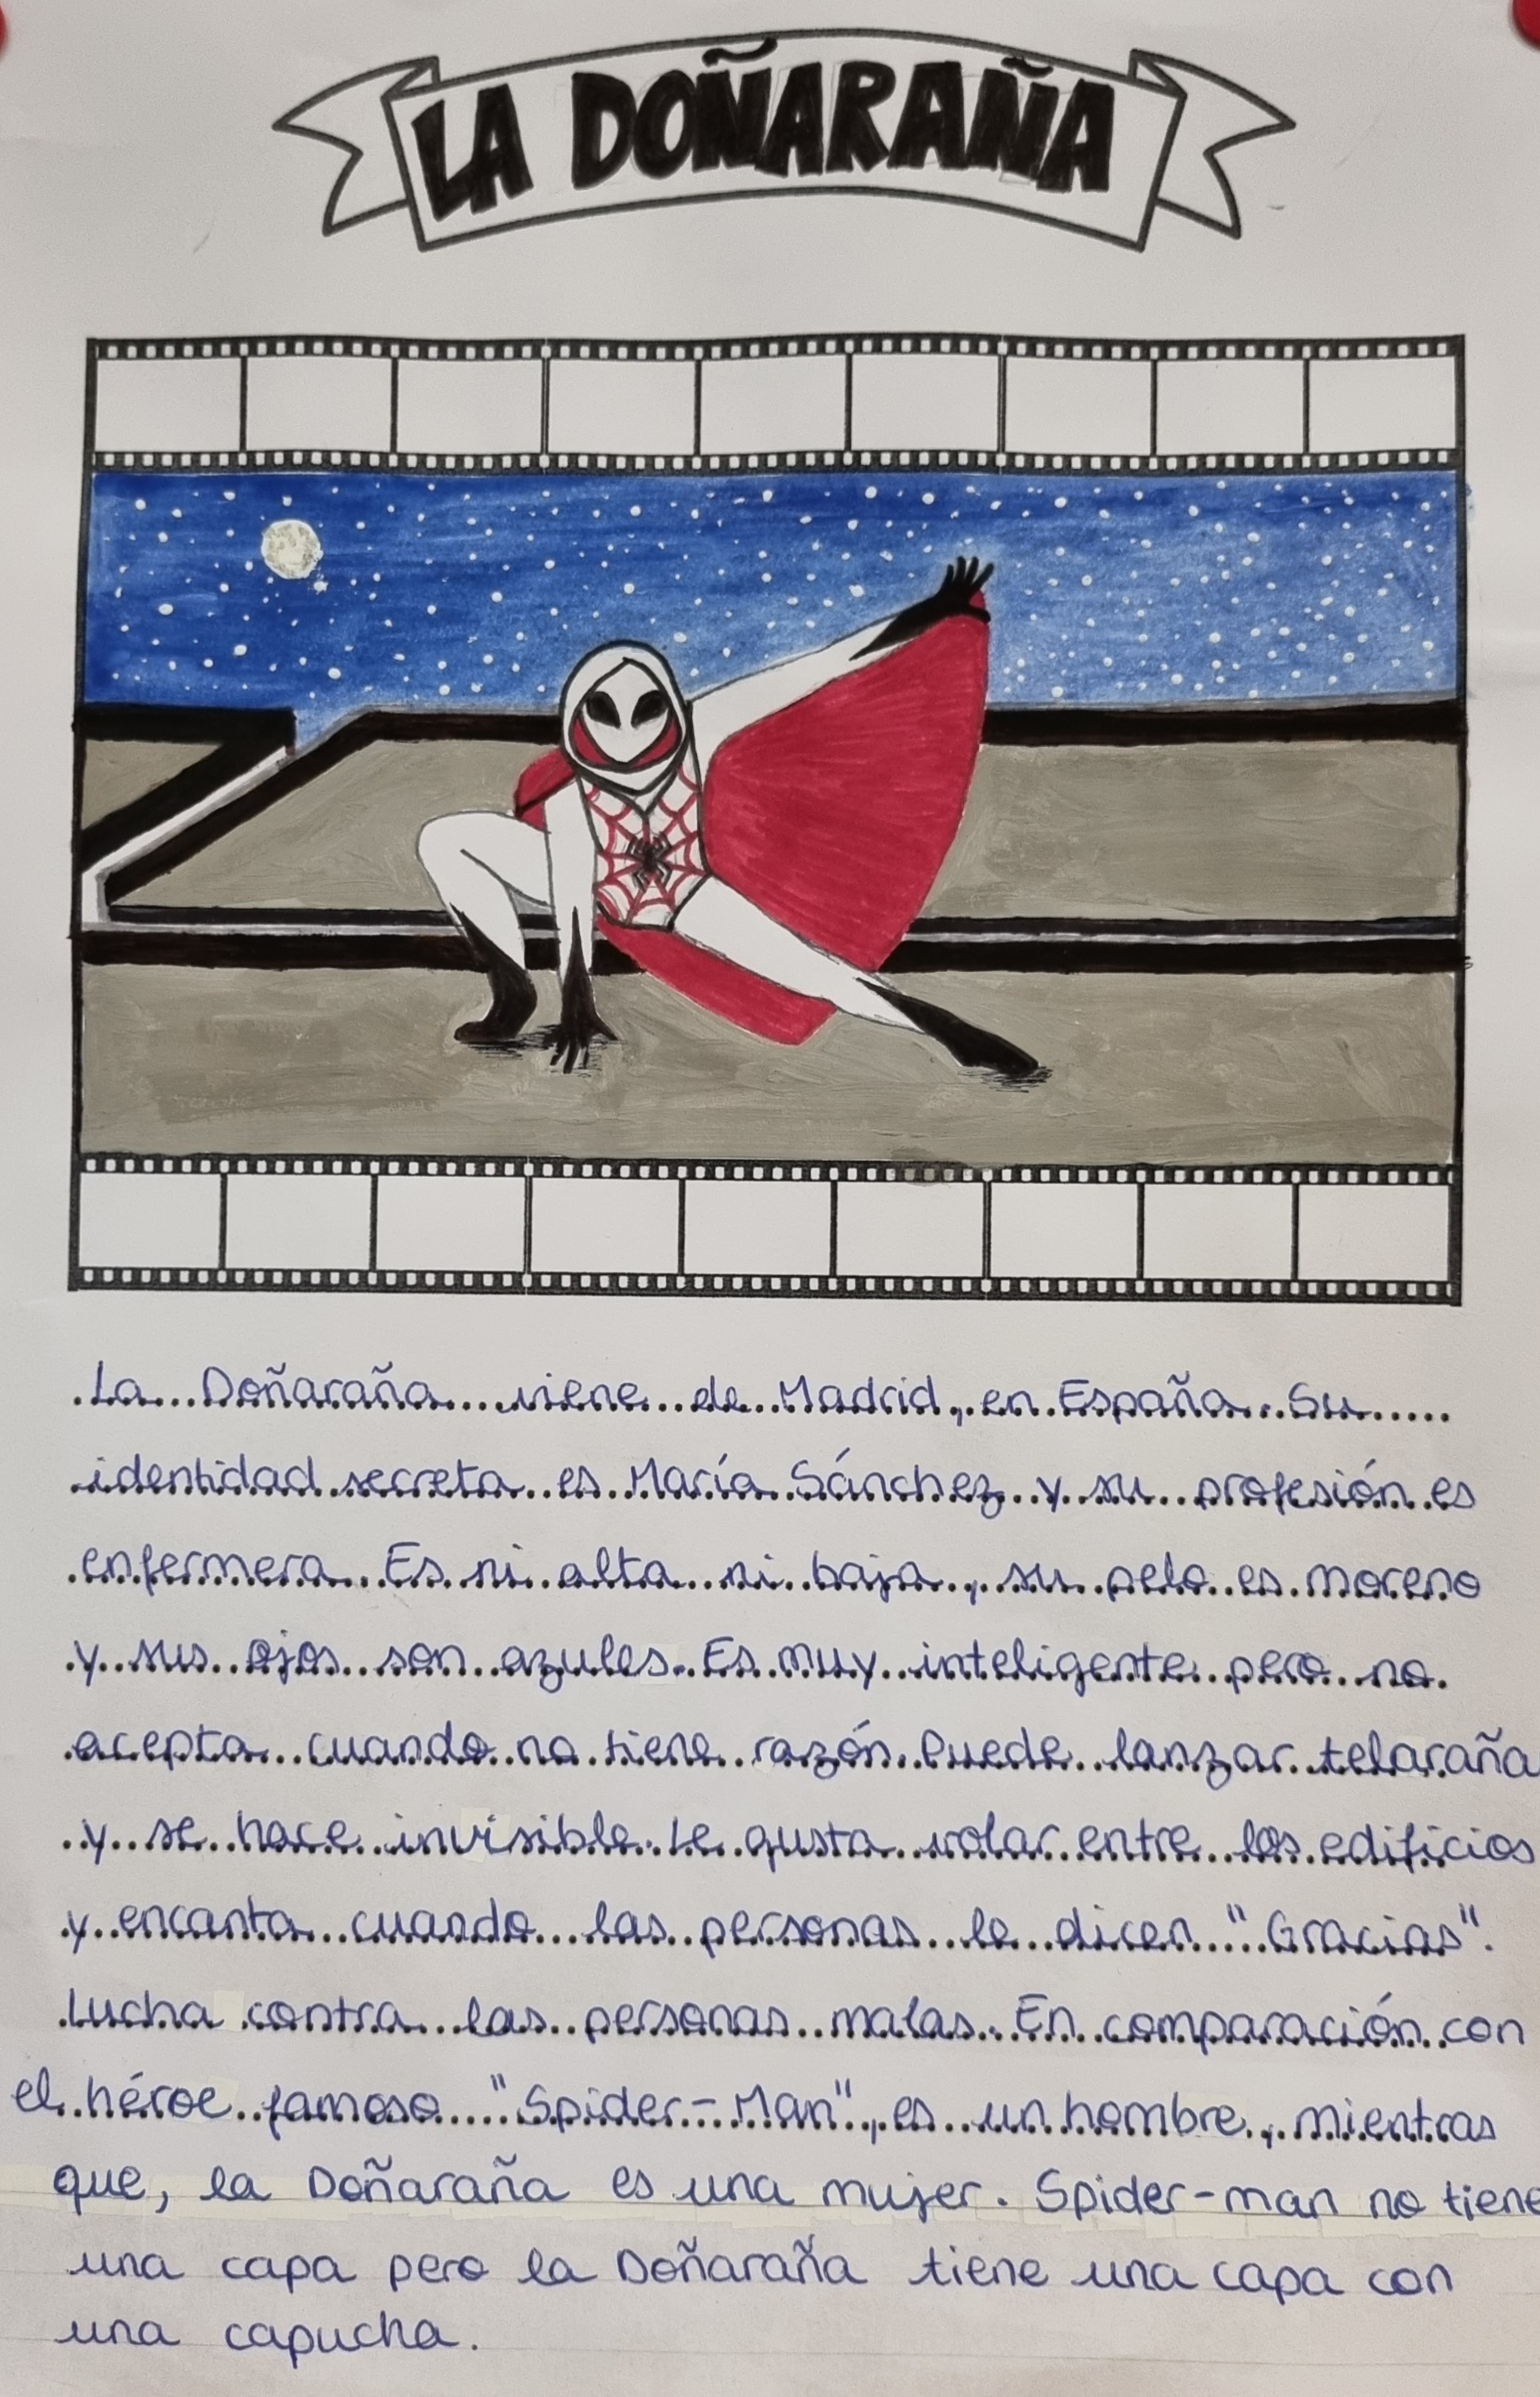 LA DOÑARAÑA
La Doñaraña viene de Madrid, en España. Su
identidad secreta es María Sánchez y su profesión es
enfermera. Es ni alta ni baja, su pelo es moreno
y sus ojos son azules. Es muy inteligente pero no
acepta cuando no tiene razón. Puede lanzar telaraña
y se hace invisible. Le gusta volar entre los edificios
y encanta cuando las personas le dicen "Gracias".
Lucha contra las personas malas. En comparación con
el héroe famoso "Spider-Man", es un hombre, mientras
que, la Doñaraña es una mujer. Spider-man no tiene
una capa pero la Doñaraña tiene una capa con
una capucha.